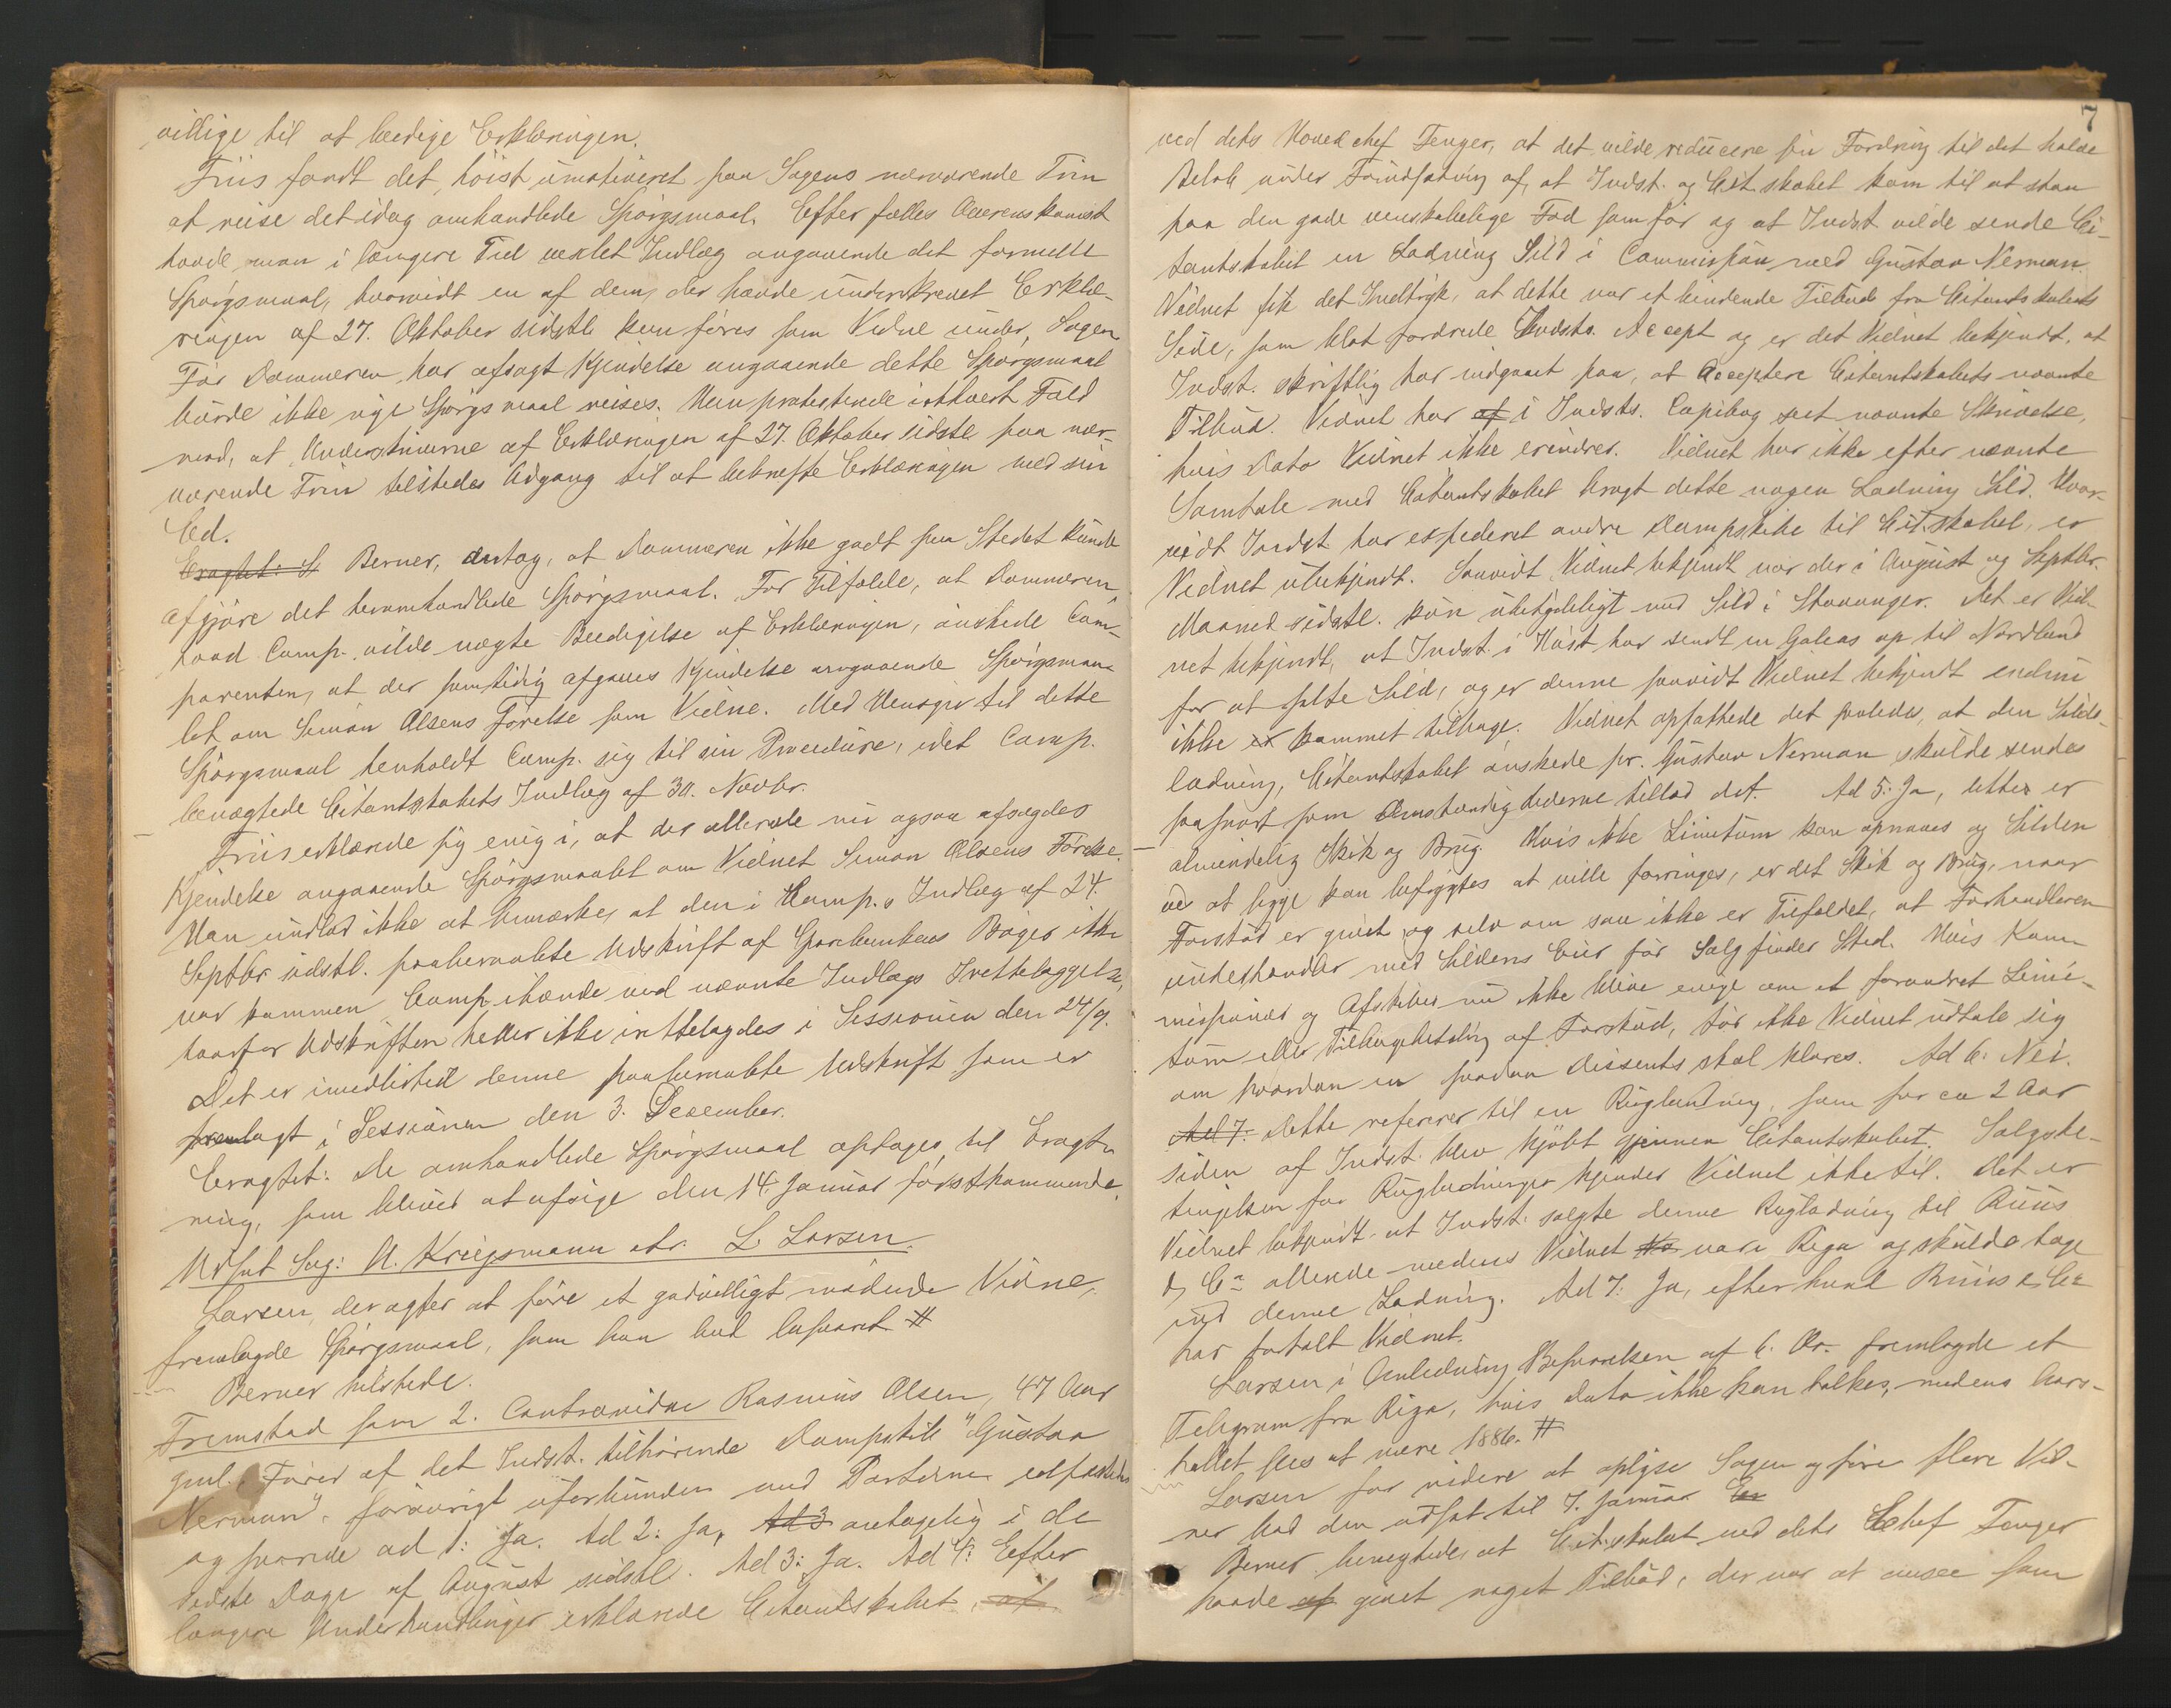 villige til at beedige Erklæringen.
Friis fandt det høist umotiveret paa Sagens nærværende Trin
at reise det idag omhandlede Spørgsmaal. Efter fælles Overenskomst
havde man i længere Tid vexlet Indlæg angaaende det formelle
Spørgsmaal, hvorvidt en af dem, der havde underskrevet Erklæ-
ringen af 27. Oktober sidstl. kan føres som Vidne under Sagen.
Før Dommeren har afsagt Kjendelse angaaende dette Spørgsmaal
burde ikke nye Spørgsmaal reises. Man protesterede i ethvert Fald
mod, at Underskriverne af Erklæringen af 27. Oktober sidstl. paa nær-
værende Trin tilstedes Adgang til at bekræfte Erklæringen med sin
Ed.
Eragtet: S Berner, antog, at Dommeren ikke godt paa Stedet kunde
afgjøre det heromhandlede Spørgsmaal. For Tilfælde, at Dommeren
hvad Comp. vilde nægte Beedigelse af Erklæringen, ønskede Com-
parenten, at der samtidig afgaves Kjendelse angaaende Spørgsmaa-
let om Simon Olsens Førelse som Vidne. Med Hensyn til dette
Spørgsmaal henholdt Comp. sig til sin Procedure, idet Comp.
benægtede Citantskabets Indlæg af 30. Novbr.
Friis erklærede sig enig i, at der allerede nu ogsaa afsagdes
Kjendelse angaaende Spørgsmaalet om Vidnet Simon Olsens Førelse.
Man undlod ikke at bemærke, at den i Comp.s Indlæg af 24.
Septbr sidstl. paaberaabte Udskrift af Sparebankens Bøger ikke
var kommen Comp. ihænde ved nævnte Indlægs Irettelæggelse,
hvorfor Udskriften heller ikke irettelagdes i Sessionen den 24/9.
Det er imidlertid denne paaberaabte Udskrift som er
fremlagt i Sessionen den 3. Desember.
Eragtet: De omhandlede Spørgsmaal optages til Eragt-
ning, som bliver at afsige den 14. Januar førstkommende.
Udsat Sag: A. Kriegsmann ctr. L. Larsen.
Larsen, der agter at føre et godvilligt mødende Vidne,
fremlagde Spørgsmaal, som han bad besvaret #
Berner tilstede.
Fremstod som 2. Contravidne Rasmus Olsen, 47 Aar
gml., Fører af det Indst. tilhørende Dampskib "Gustav
Nerman", forøvrigt uforbunden med Parterne edfæstedes
og svarede ad 1: Ja. Ad 2: Ja, Ad 3 antagelig i de
sidste Dage af August sidstl. Ad 3: Ja. Ad 4: Efter
længere Underhandlinger erklærede Citantskabet, at
7
ved dets Hovedchef Fenger, at det vilde reducere sin Fordring til det halve
Beløb under Forudsætning af, at Indst. og Citskabet kom til at staa
paa den gode venskabelige Fod som før og at Indst vilde sende Ci-
tantskabet en Ladning Sild i Commission med Gustav Nerman.
Vidnet fik det Indtryk, at dette var et bindende Tilbud fra Citantskabets
Side, som blot fordrede Indsts. Accept og er det Vidnet bekjendt, at
Indst. skriftlig har indgaaet paa, at Acceptere Citantskabets nævnte
Tilbud. Vidnet har af i Indsts. Copibog seet nævnte Skrivelse,
hvis Dato Vidnet ikke erindrer. Vidnet har ikke efter nævnte
Samtale med Citantskabet bragt dette nogen Ladning Sild. Hvor-
vidt Indst har expederet andre Dampskibe til Citskabet, er
Vidnet ubekjendt. Saavidt Vidnet bekjendt var der i August og Septbr.
Maaned sidstl. kun ubetydeligt med Sild i Stavanger. Det er Vid-
net bekjendt, at Indst. i Høst har sendt en Galeas op til Nordland
for at salte Sild, og er denne saavidt Vidnet bekjendt endnu
ikke er kommet tilbage. Vidnet opfattede det saaledes, at den Silde-
ladning, Citantskabet ønskede pr. Gustav Nerman skulde sendes
saasnart som Omstændighederne tillod det. Ad 5: Ja, dette er
almindelig Skik og Brug. Hvis ikke Limitum kan opnaaes og Silden
ved at ligge kan befrygtes at ville forringes, er det Skik og Brug, naar
Forskud er givet og selv om saa ikke er Tilfældet, at Forhandleren
underhandler med Sildens Eier før Salg finder Sted. Hvis Kom-
missionær og Afskiber nu ikke blive enige om et forandret Limi-
tum eller Tilbagebetaling af Forskud, tør ikke Vidnet udtale sig
om hvordan en saadan Dissents skal klares. Ad 6: Nei.
Ad 7: Dette refererer til en Rugladning, som for ca 2 Aar
siden af Indst. blev kjøbt gjennem Citantskabet. Salgsbe-
tingelsen for Rugladningen kjender Vidnet ikke til. Det er
Vidnet bekjendt at Indst. solgte denne Rugladning til Ruus
& Co allerede medens Vidnet var i Riga og skulde tage
ind denne Ladning. Ad 7: Ja, efter hvad Ruus & Co
har fortalt Vidnet.
Larsen i Anledning Besvarelsen af 6. fremlagde et
Telegram fra Riga, hvis Dato ikke kan tolkes, medens Aars-
tallet sees at være 1886. #
Larsen for videre at oplyse Sagen og føre flere Vid-
ner bad den udsat til 7. Januar
Berner benægtede, at Citskabet ved dets Chef Fenger
havde af givet noget Tilbud, der var at ansee som